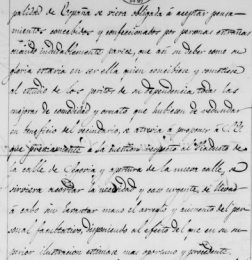 palidad de España se viera obligada á aceptar pensa-
mientos concebidos y confeccionados por personas extrañas
cuando indudablemente parece, que así su deber como su
gloria estaria en ser ella quien concibiese y sometiese
al estudio de los peritos de su dependencia todas las
mejoras de comodidad y ornato que hubiesen de redundar
en beneficio del vecindario, se atreve á proponer á V.E.
que previamente á la cuestion respecto al
la calle de y apertura de la nueva calle, se
sirviera acordar la necesidad y caso urgente, se llevase
á cabo sin levantar mano el arreglo y aumento del per-
sonal facultativo, disponiendo al efecto del que en su su-
perior ilustracion estimase mas oportuno y procedente